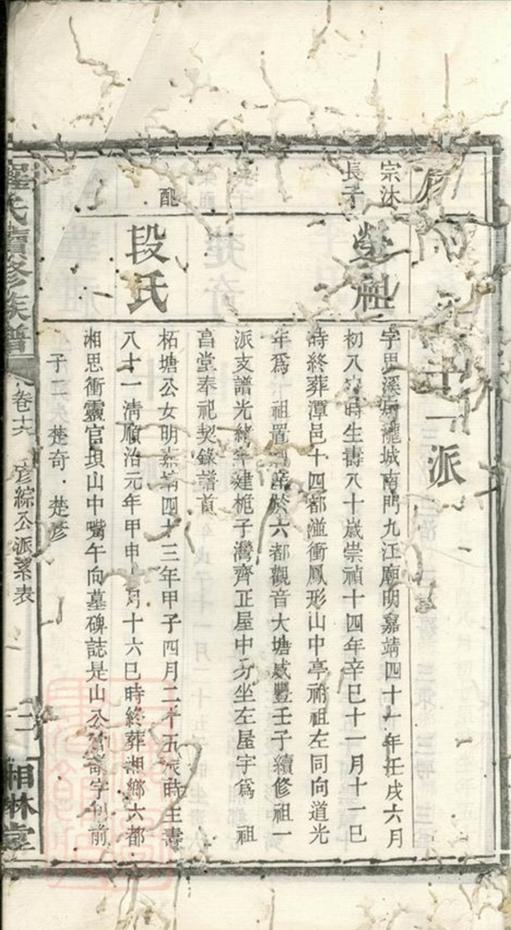 十一派
宗沐
長子
榮祖
字思溪居瀧城南門九江廟明嘉靖四十一年壬戌六月
初八時生壽八十歲崇禎十四年辛巳十一月十一巳
時終葬潭邑十四都溢衝鳳形山中亭祔祖左同向道光
年為祖置於六都觀音大塘咸豐壬子續修祖一
派支譜光緒年建桅子灣齊正屋中分坐左屋宇為祖
昌堂奉祀契錄譜首
配
段氏
柘塘公女明嘉靖四十三年甲子四月二十五辰時生壽
八十一清順治元年甲申月十六巳時終葬湘鄉六都
相思衝靈官垻山中嘴午向墓碑誌是山公奇字前
子二 楚奇 楚彥
羅氏續修族譜
卷十六
彥綜公派系表
二